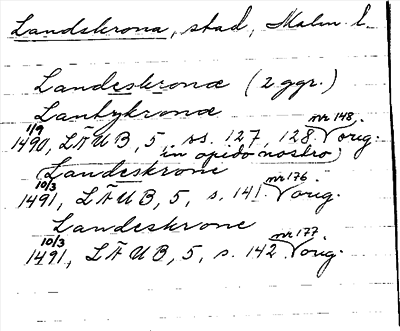 Landskrona, stad, Malm. l.
Landeskronæ (2 ggr.)
Lantykronæ
1/9 1490, LÄUB, 5, ss. 127, 128. nr 148, orig.
(in opido nostro)
Landeskrone
10/3 1491, LÄUB, 5, s. 141 nr 176 orig.
Landeskrone
10/3 1491, LÄUB, 5, s. 142 nr 177. orig.